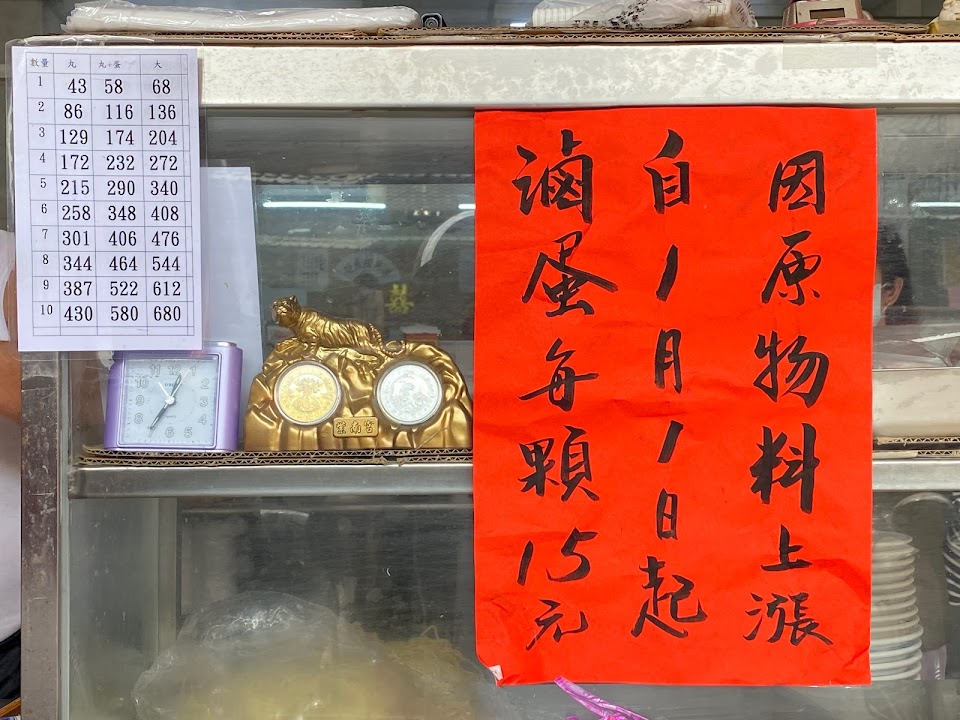 數量 丸 丸+蛋 大
1 43 58 68
2 86 116 136
3 129 174 204
4 172 232 272
5 215 290 340
6 258 348 408
7 301 406 476
8 344 464 544
9 387 522 612
10 430 580 680
因原物料上漲
自1月1日起
滷蛋每顆15元
紫南宮
11 12 1
10 2
9 3
8 4
6 5